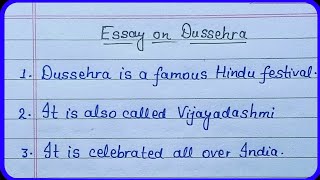 Essay on Dussehra
1. Dussehra is a famous Hindu festival.
2. It is also called Vijayadashmi
3. It is celebrated all over India.